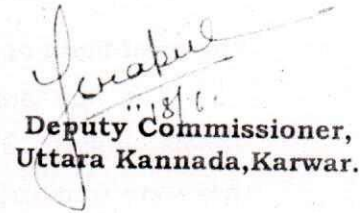 18/6.
Deputy Commissioner,
Uttara Kannada,Karwar.